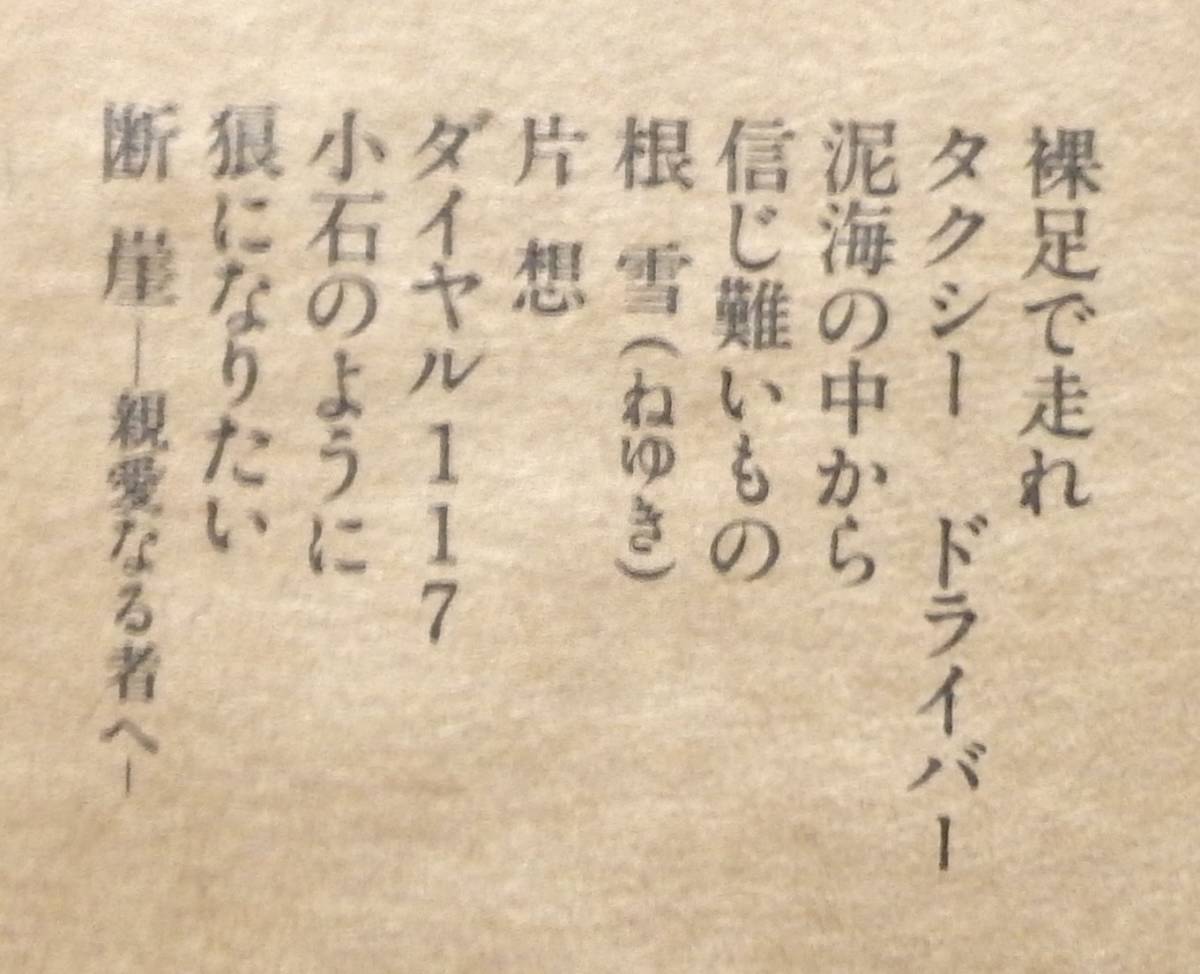 裸足で走れ
タクシー ドライバー
泥海の中から
信じ難いもの
根 雪（ねゆき）
片 想
ダイヤル117
小石のように
狼になりたい
断 崖―親愛なる者へ―